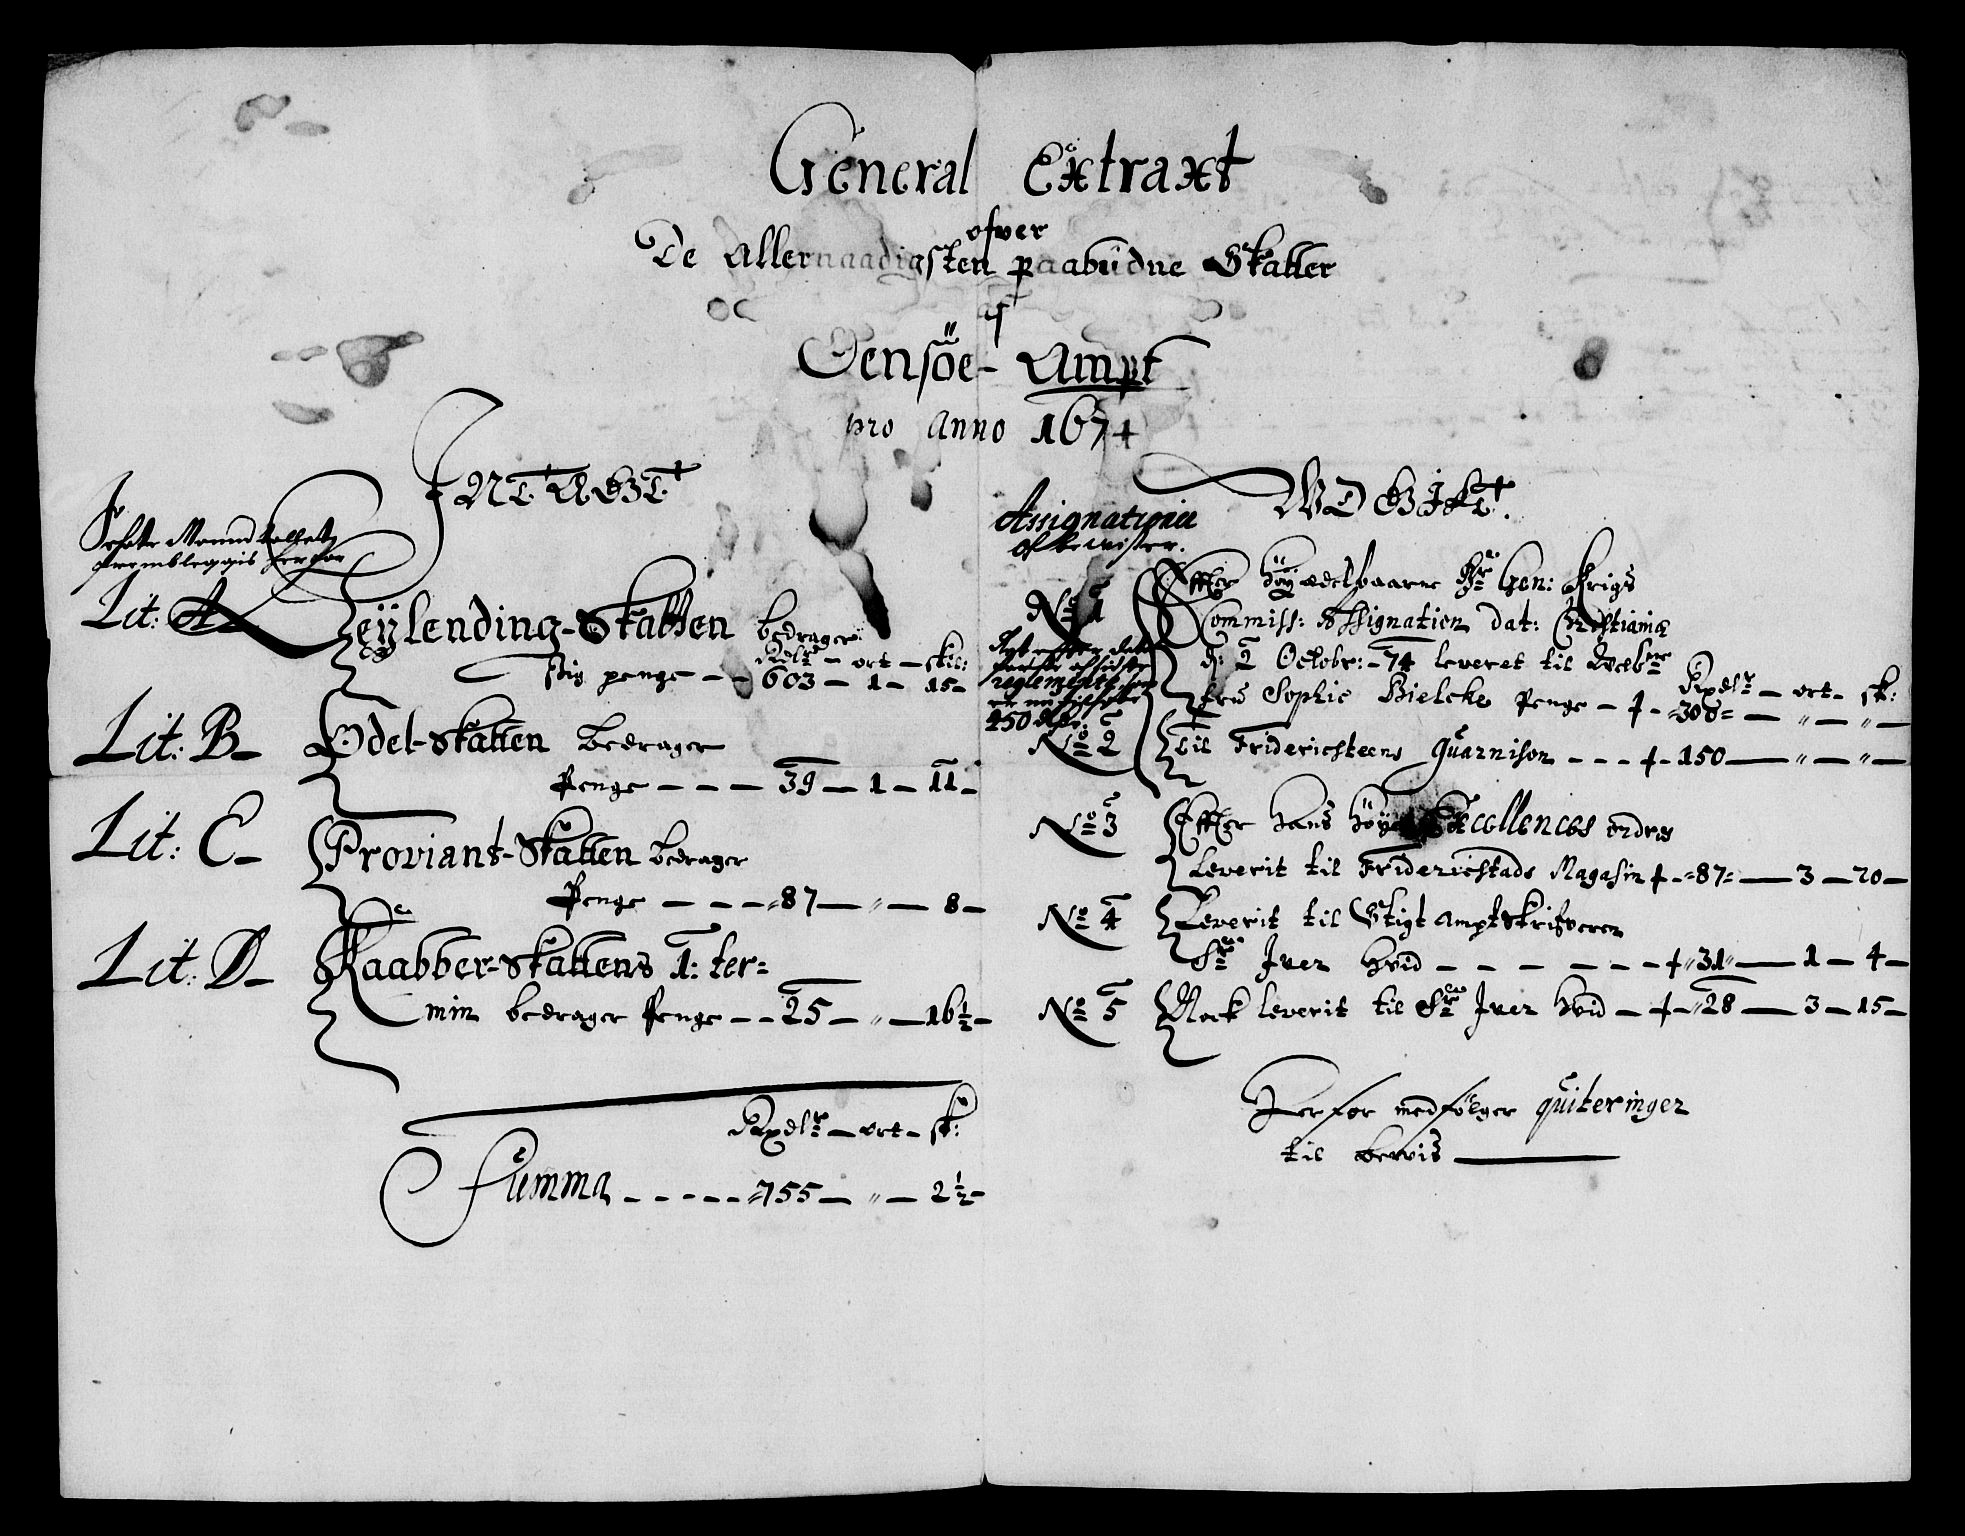 General Extraxt
ofver
De Allernaadigsten paabüdne Skatter
af
Oensöe-Ampt
pro Anno 1674
INTEGT
herfor
Lit: A Leÿlending-Skatten bedrager
Rdlr – ort – skil:
penge – – 603 – 1 – 15 –
Lit: B – Odel-Skatten Bedrager
Penge – – – 39 – 1 – 11 –
Lit: C – Proviant-Skatten bedrager
Penge – – – 87 – " – 8 –
Lit: D – Kaabber-Skattens 1: ter=
min bedrager Penge – – 25 – " – 16½ –
Rxdlr – ort – sk:
Summa – – – – – 755 – " – 2½ –
VDGIFT.
Assignationer
No 1 Effter Höÿædelbaarne Hr Gen: Krigs
Commiss: Assignation dat: Christianiæ
d: 2 Octobr: – 74 leveret til
frü Sophie Bielcke Penge – 308 – " – " –
Rxdlr – ort – sk:
reglemente
450 Rdr:
No 2 Til Friderichsteens Guarnison – – – 150 – " – " –
No 3 Effter hans höye Excellences ordre
Leverit til Friderichstads Magasin – 87 – 3 – 20 –
No 4 Leverit til Stigt Amptskrifveren
Sr Iver Hvid – – – – – – 31 – 1 – 4 –
No 5 Nock leverit til Sr Iver Hvid – 28 – 3 – 15 –
Herfor medfölger quiteringer
til bevis